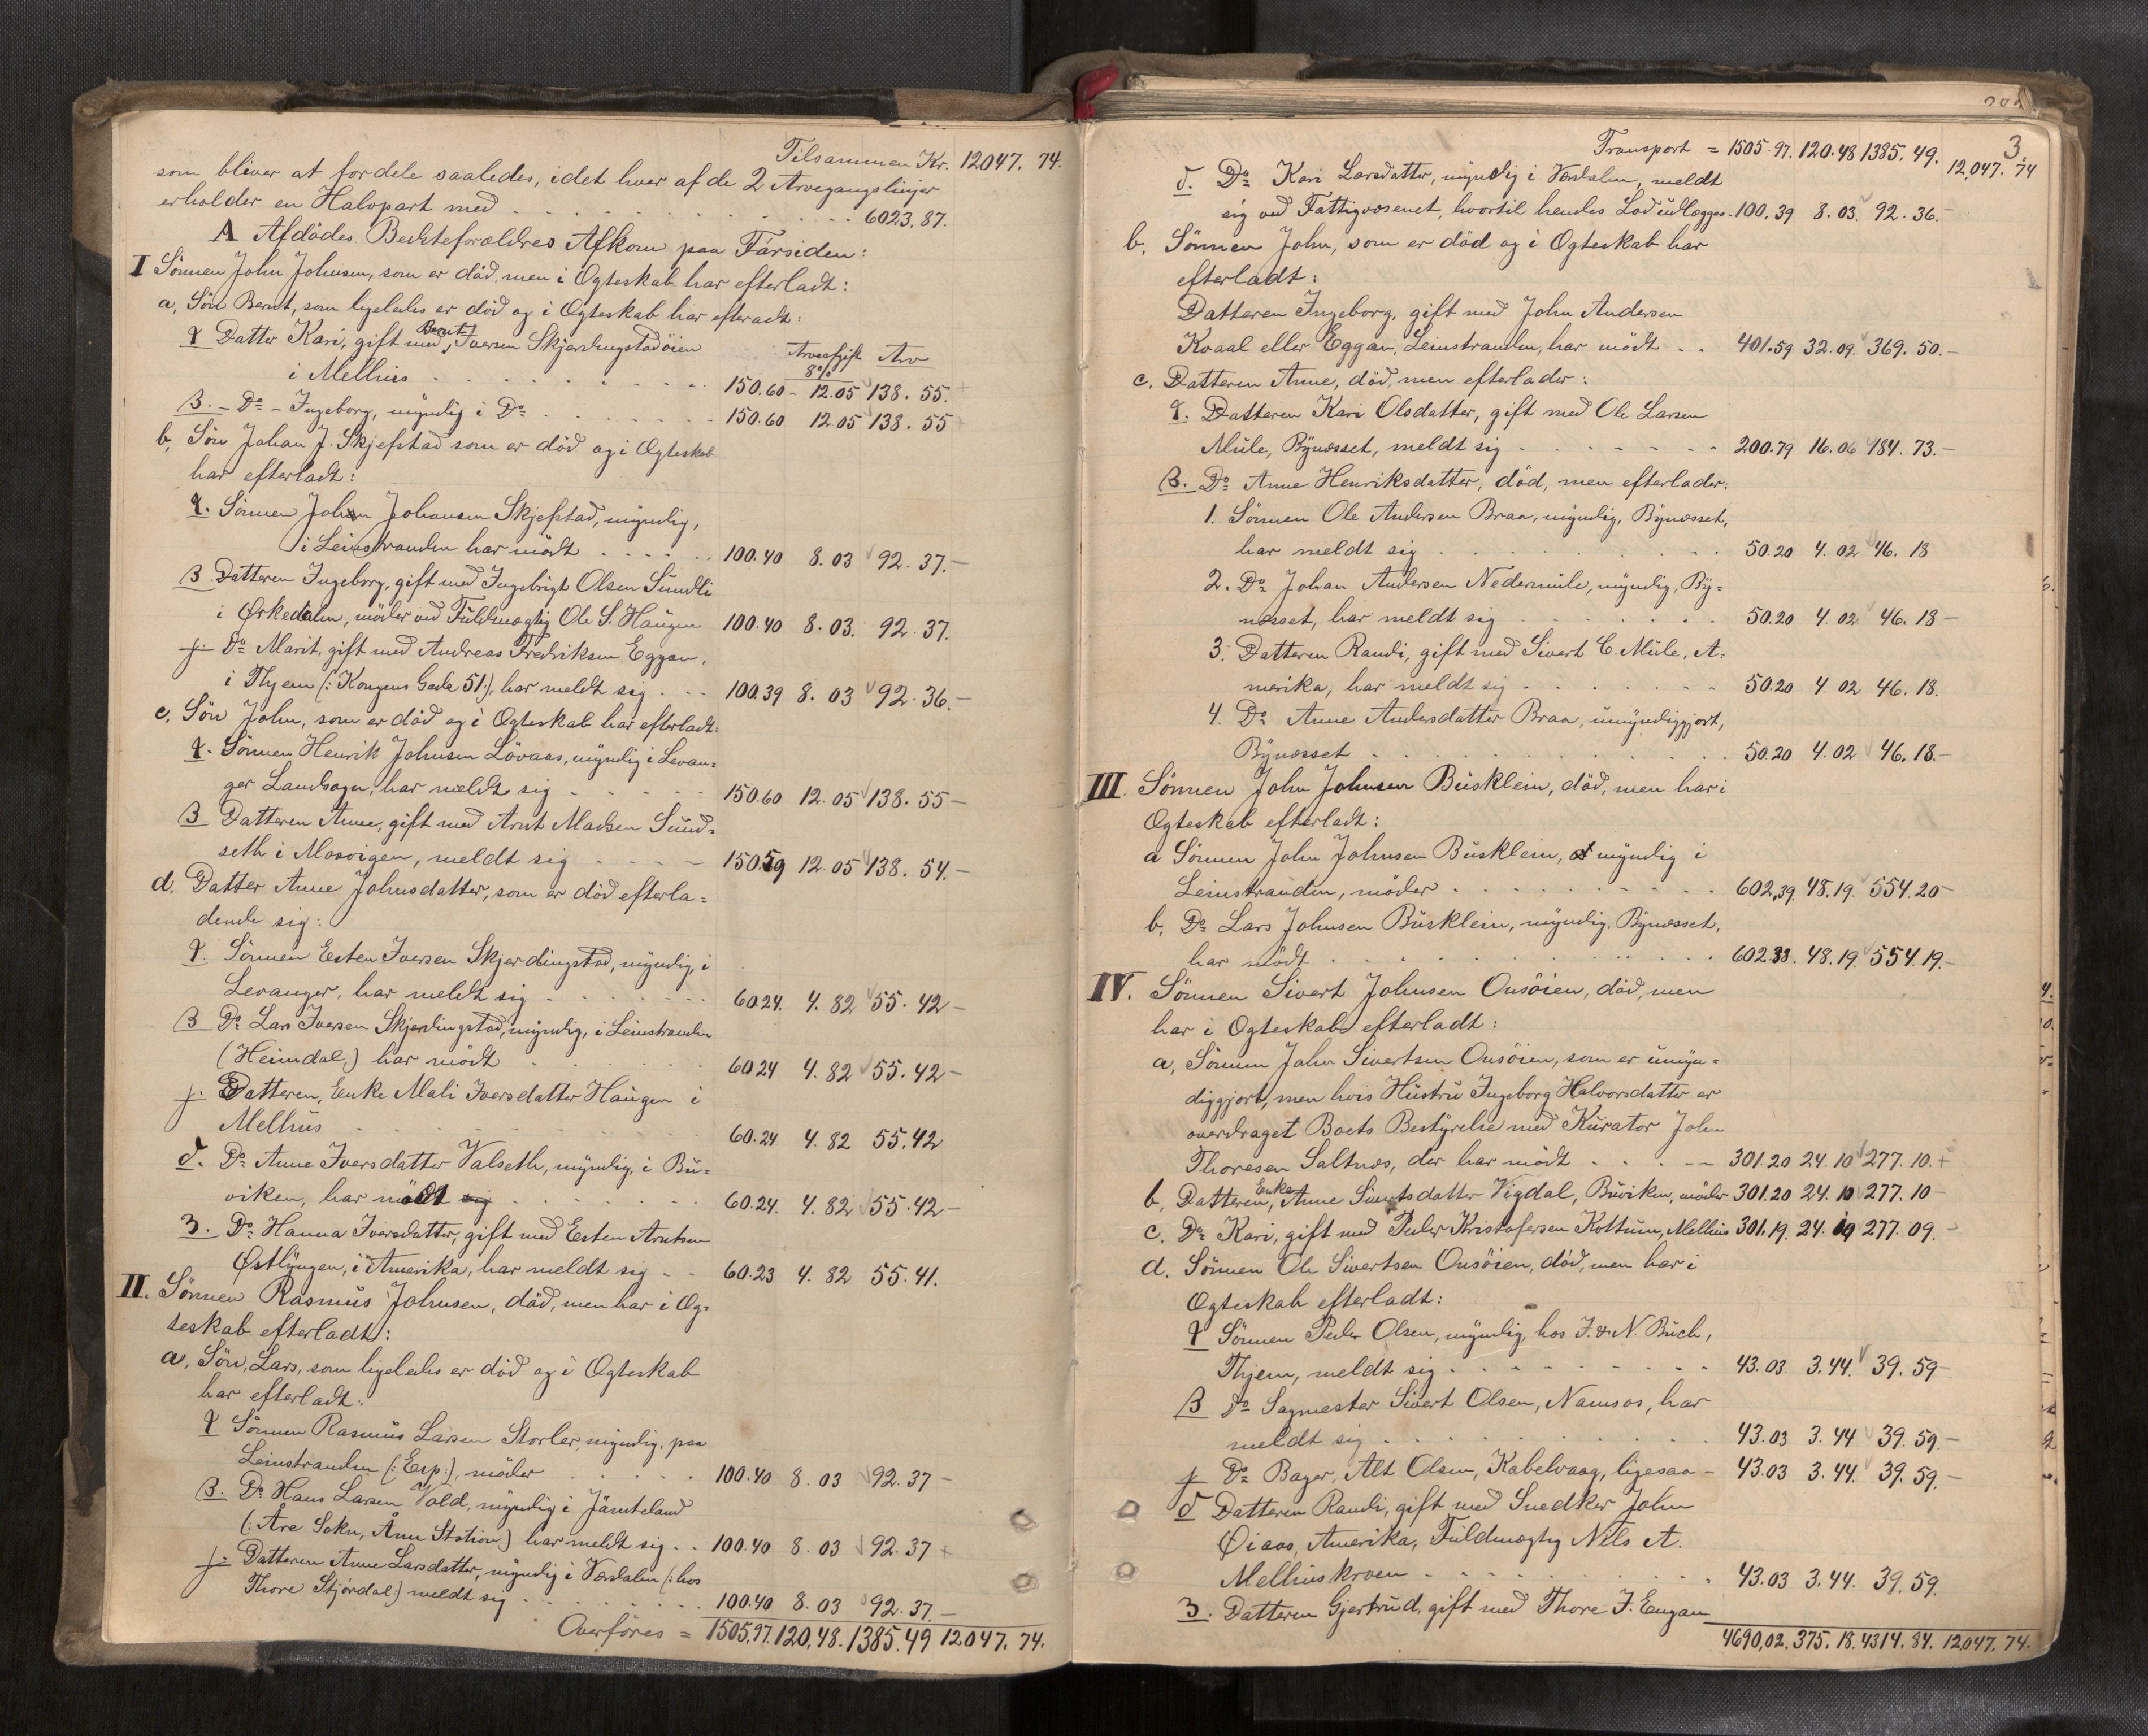 Tilsammen Kr. 12047. 74.
som bliver at fordele saaledes, idet hver af de 2 Arvegangslinjer
erholder en Halvpart med . . . 6023,87.
A Afdødes Bedsteforældres Afkom paa Farsiden:
I Sönnen John Johnsen, som er död, men i Ogteskab har efterladt:
a, Sön Bernt, som ligeledes er död og i Ogteskab har efteradt:
α Datter Kari, gift med Bernt Iversen Skjerdingstadöien Arveafgift Arv
8%
i Melhus . . . 150.60 - 12.05 138. 55.
β. - Do - Ingeborg, myndig i Do . . . 150.60 12.05 138. 55
b, Sön Johan J. Skjefstad som er död og i Ogteskab
har efterladt:
α. Sönnen Johan Johansen Skjefstad, myndig,
i Leinstranden har mödt . . . 100.40 8.03 92.37.-
β Datteren Ingeborg, gift med Ingebrigt Olsen Sundli
i Ørkedalen, möder ved Fuldmægtig Ole S. Haugen 100.40 8.03. 92.37.
γ. Do Marit, gift med Andreas Fredriksen Eggan,
i Thjem (: Kongens Gade 51:), har meldt sig . . . 100.39 8.03 92.36.-
c, Sön John, som er död og i Ogteskab har efterladt:
α. Sönnen Henrik Johnsen Lövaas, myndig i Levan=
ger Landsogn, har meldt sig . . . 150.60 12.05 138.55-
β Datteren Anne, gift med Arnt Madsen Sund=
seth i Mosvigen, meldt sig . . . 150.59 12.05 138.54.-
d. Datter Anne Johnsdatter, som er död efterla=
dende sig:
α. Sönnen Esten Iversen Skjerdingstad, myndig, i
Levanger, har meldt sig . . . 60.24. 4.82 55.42-
β Do Lars Iversen Skjerdingstad, myndig, i Leinstranden
(Heimdal,) har mödt . . . 60.24 4.82 55.42-
γ. Datteren, Enke Mali Iversdatter Haugen i
Melhus . . . 60.24 4.82 55.42
δ. Do Anne Iversdatter Valseth, myndig, i Bu=
viken, har mödt sig . . . 60.24. 4.82 55.42-
3. Do Hanna Iversdatter, gift med Esten Arntsen
Østlyngen, i Amerika, har meldt sig . . 60.23 4.82 55.41.
II. Sönnen Rasmus Johnsen, död, men har i Og=
teskab efterladt:
a, Sön, Lars, som ligeledes er död og i Ogteskab
har efterladt:
α Sönnen Rasmus Larsen Storler, myndig, paa
Leinstranden (: Esp:), möder . . . 100.40 8.03 92.37-
β. Do Hans Larsen Vold, myndig i Jämteland
(: Åre Sokn, Ånn Station) har meldt sig . . 100.40 8.03 92.37
γ. Datteren Anne Larsdatter, myndig i Værdalen (: hos
Thore Stjördal:) meldt sig . . . 100.40 8.03 92.37.-
Overföres = 1505,97. 120,48. 1385.49 12047. 74.
3.
Transport = 1505.97. 120.48 1385.49. 12,047. 74
δ. Do Kari Larsdatter, myndig i Værdalen, meldt
sig ved Fattigvæsenet, hvortil hendes Lod udlægges. 100.39 8.03. 92.36.-
b, Sönnen John, som er död og i Ogteskab har
efterladt:
Datteren Ingeborg, gift med John Andersen
Kvaal eller Eggan, Leinstranden, har mödt . . 401.59 32.09. 369.50.-
c. Datteren Anne, död, men efterlader:
α. Datteren Kari Olsdatter, gift med Ole Larsen
Mule, Bynæsset, meldt sig . . . 200.79 16.06 184.73.-
β. Do Anne Henriksdatter, död, men efterlader:
1. Sönnen Ole Andersen Braa, myndig, Bynæsset,
har meldt sig . . . 50.20 4.02 46.18
2. Do Johan Andersen Nedermule, myndig, By=
næsset, har meldt sig . . . 50.20 4.02 46.18-
3. Datteren Randi, gift med Sivert C. Mule, A=
merika, har meldt sig . . . 50.20 4.02 46.18.
4. Do Anne Andersdatter Braa, umyndiggjort,
Bynæsset . . . 50.20 4.02 46.18.-
III. Sönnen John Johnsen Busklein, död, men har i
Ogteskab efterladt:
a Sönnen John Johnsen Busklein, myndig i
Leinstranden, möder . . . 602,39. 48.19. 554.20-
b, Do Lars Johnsen Busklein, myndig, Bynæsset,
har mödt . . . 602.38. 48.19. 554.19.-
IV. Sönnen Sivert Johnsen Onsöien, död, men
har i Ogteskab efterladt:
a, Sönnen John Sivertsen Onsöien, som er umyn=
diggjort, men hvis Hustru Ingeborg Halvorsdatter er
overdraget Boets Bestyrelse med Kurator John
Thoresen Saltnæs, der har mödt . . . 301.20 24.10 277.10.
b, Datteren, Enke Anne Sivertsdatter Vigdal, Buviken, möder 301.20 24.10 277.10-
c. Do Kari, gift med Peder Kristofersen Kottum, Melhus 301.19. 24.10 277.09.-
d. Sönnen Ole Sivertsen Onsöien, död, men har i
Ogteskab efterladt:
α Sönnen Peder Olsen, myndig, hos F. & N. Buch,
Thjem, meldt sig . . . 43.03 3.44. 39.59-
β Do Sagmester Sivert Olsen, Namsos, har
meldt sig . . . 43.03 3.44 39.59.-
γ Do Bager, Alt Olsen, Kabelvaag, ligesaa - 43.03 3.44. 39.59.-
δ Datteren Randi, gift med Snedker John
Øiaas, Amerika, Fuldmægtig Nils A.
Melhuskroen . . . 43.03 3.44. 39.59.
3. Datteren Gjertrud, gift med Thore J. Engan
4690,02. 375.18. 4314.84. 12,047. 74.